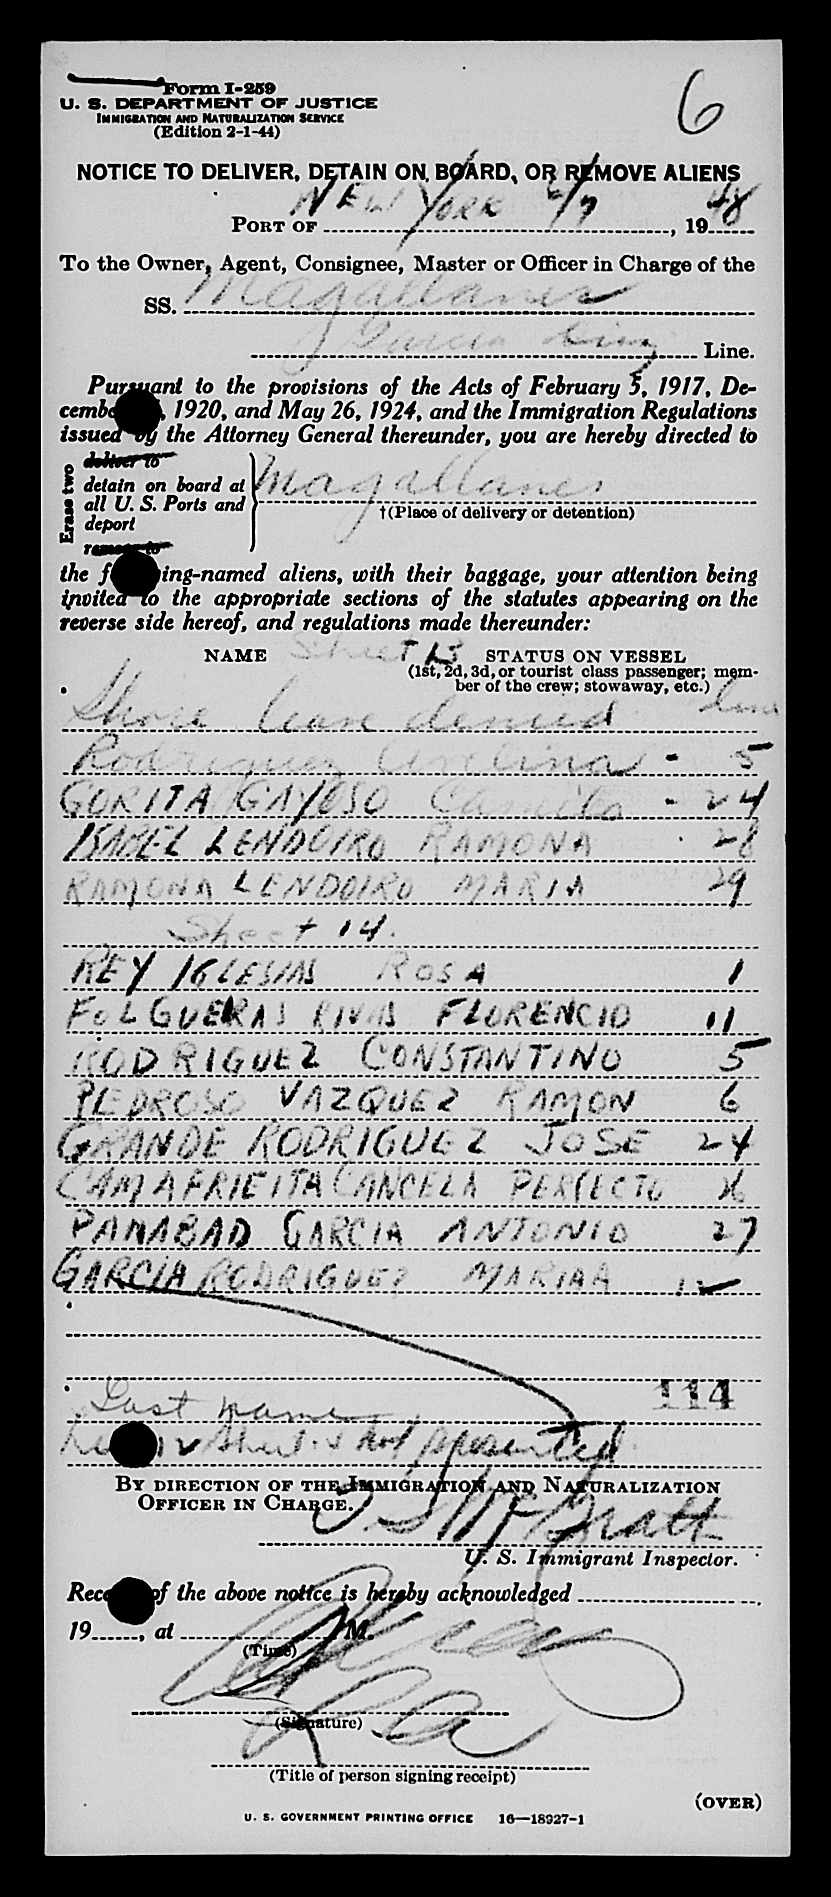 Form I-259
6
U. S. DEPARTMENT OF JUSTICE
IMMIGRATION AND NATURALIZATION SERVICE
(Edition 2-1-44)
NOTICE TO DELIVER, DETAIN ON BOARD, OR REMOVE ALIENS
PORT OF NEW YORK , 1948
To the Owner, Agent, Consignee, Master or Officer in Charge of the
SS. Magallanes
Garcia Line.
Pursuant to the provisions of the Acts of February 5, 1917, De-
cember , 1920, and May 26, 1924, and the Immigration Regulations
issued by the Attorney General thereunder, you are hereby directed to
Erase two
deliver to
detain on board at
all U. S. Ports and
deport
remove to
Magallanes
†(Place of delivery or detention)
the f ing-named aliens, with their baggage, your attention being
invited to the appropriate sections of the statutes appearing on the
reverse side hereof, and regulations made thereunder:
NAME Sheet 13 STATUS ON VESSEL
(1st, 2d, 3d, or tourist class passenger; mem-
ber of the crew; stowaway, etc.)
Shore leave denied Line
Rodriguez Avelina - 5
GORITA GAYOSO Camilo - 24
ISABEL LENDOIRO RAMONA 28
RAMONA LENDOIRO MARIA 29
Sheet 14.
REY IGLESIAS ROSA 1
FOLGUERAS RIVAS FLORENCIO 11
RODRIGUEZ CONSTANTINO 5
PEDROSO VAZQUEZ RAMON 6
GRANDE RODRIGUEZ JOSE 24
CAMAFRIEITA CANCELA PERFECTO
PANABAD GARCIA ANTONIO 27
GARCIA RODRIGUEZ MARIAA
114
Last name
Sheet not presented
BY DIRECTION OF THE IMMIGRATION AND NATURALIZATION
OFFICER IN CHARGE.
U. S. Immigrant Inspector.
Rece of the above notice is hereby acknowledged ,
19 , at M.
(Time)
(Signature)
(Title of person signing receipt)
(OVER)
U. S. GOVERNMENT PRINTING OFFICE 16—18927-1